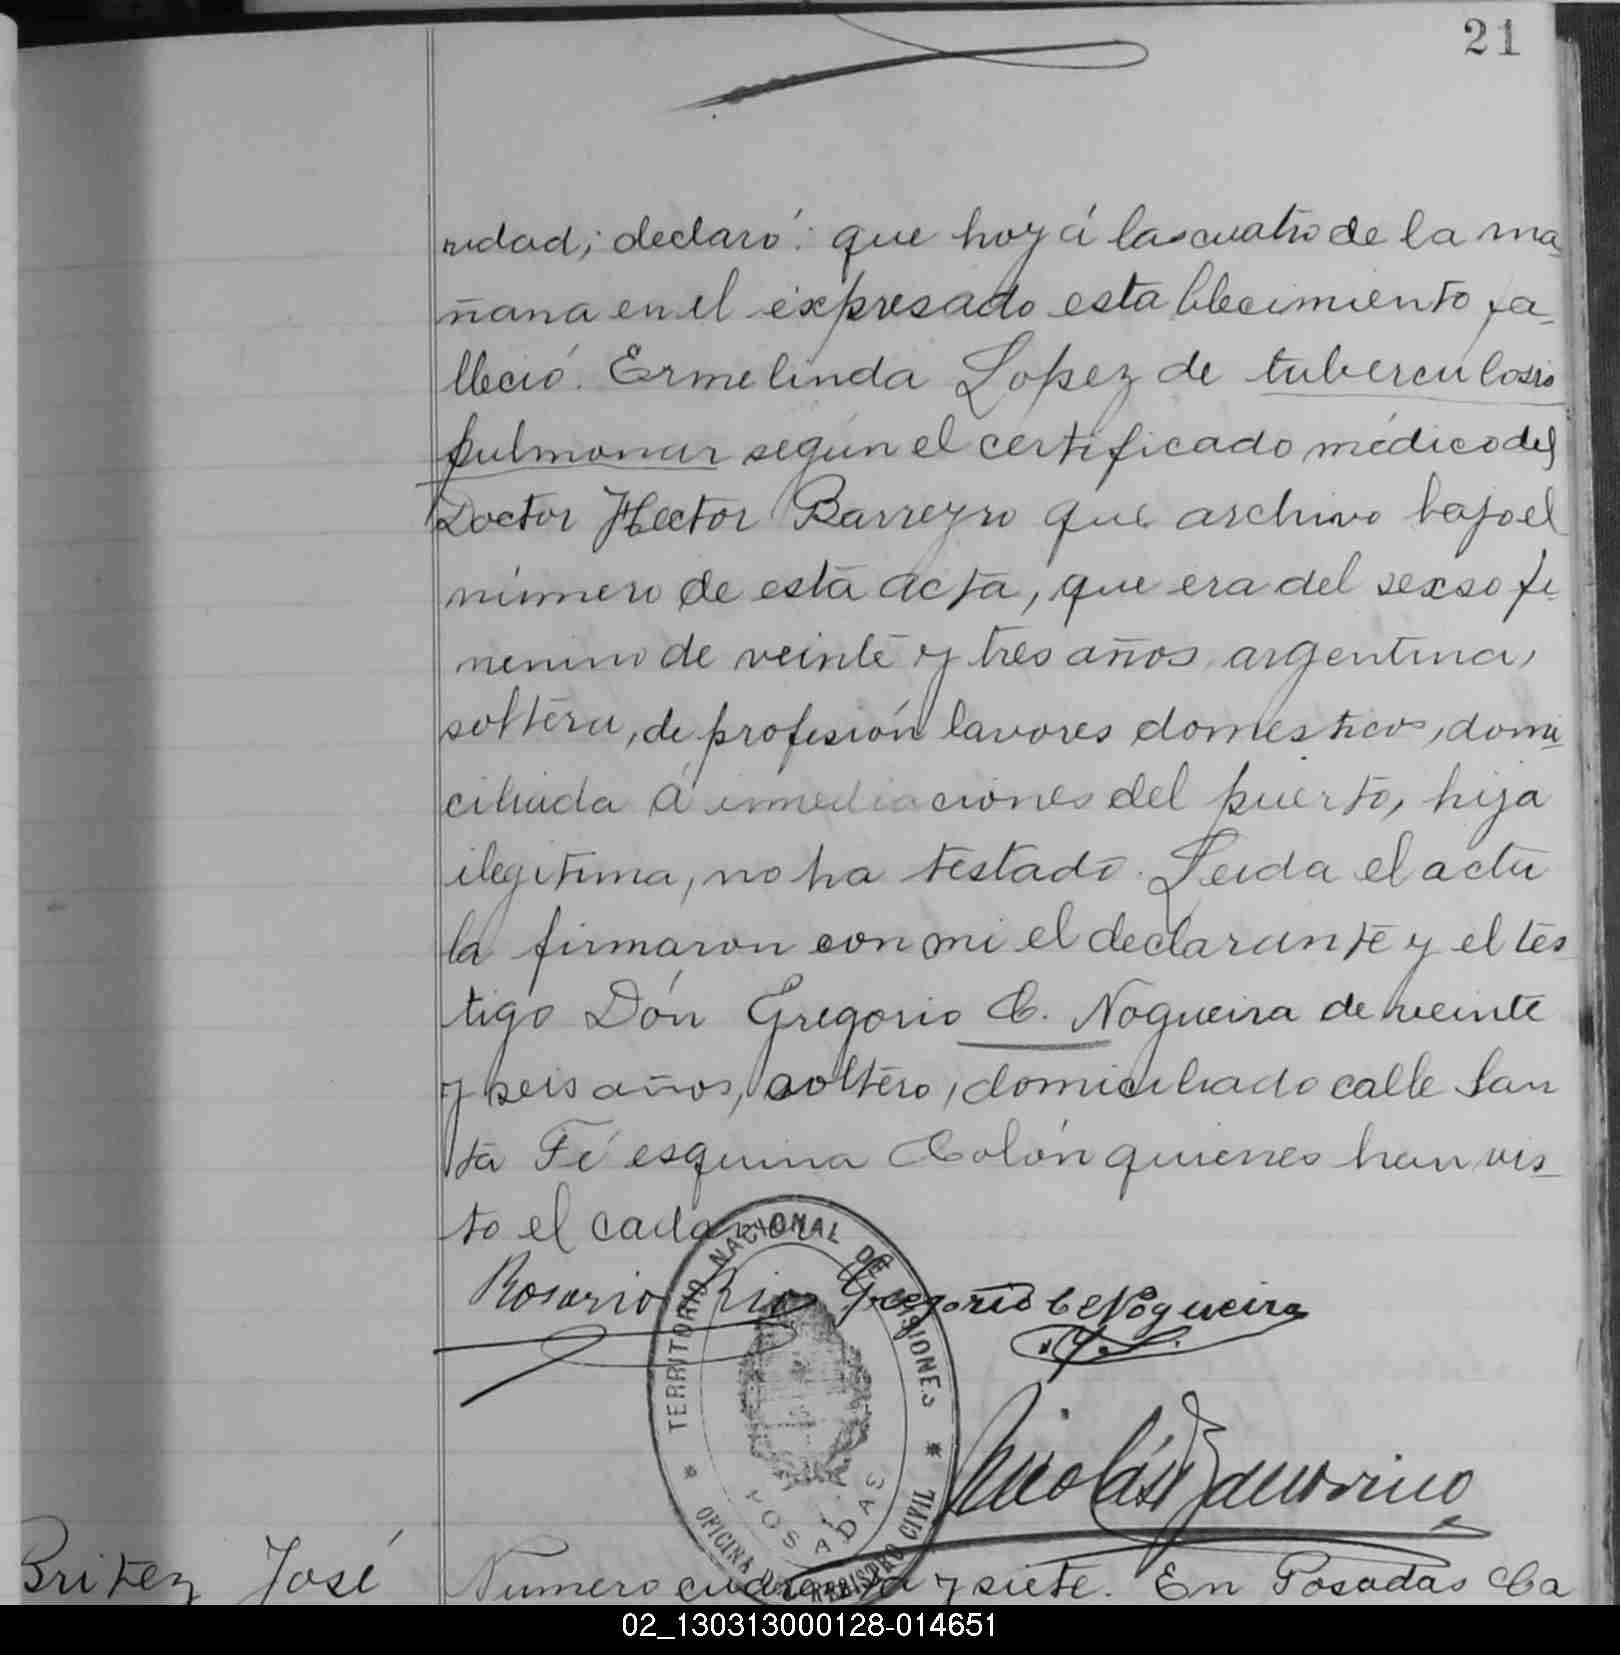 21
ridad; declaró: que hoy á las cuatro de la ma
ñana en el expresado establecimiento fa_
lleció. Ermelinda Lopez de tuberculosis
pulmonar según el certificado médico del
Doctor Hector Barreyro que archivo bajo el
número de esta acta, que era del sexso fe_
menino de veinte y tres años, argentina,
soltera, de profesión lavores domesticos, domi_
ciliada á inmediaciones del puerto, hija
ilegitima, no ha testado. Leida el acta
la firmaron con mi el declarante y el tes
tigo Dón Gregorio C. Nogueira de veinte
y seis años, soltero, domiciliado calle San
ta Fé esquina Colón quienes han vis_
to el cadaver
Rosario Rios Gregorio C Nogueira
TERRITORIO NACIONAL DE MISIONES
POSADAS
OFICINA DEL REGISTRO CIVIL
Nicolás
Britez José
Numero cuarenta y siete. En Posadas Ca
02_130313000128-014651